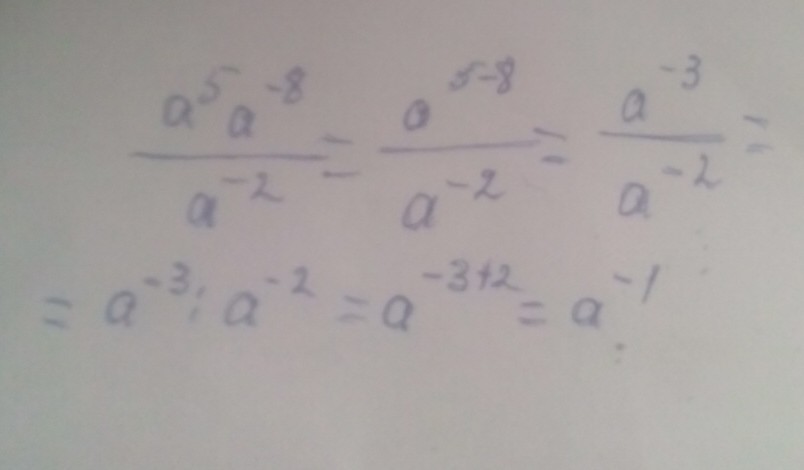 a⁵a⁻⁸/a⁻² = a⁵⁻⁸/a⁻² = a⁻³/a⁻² =
= a⁻³ : a⁻² = a⁻³⁺² = a⁻¹